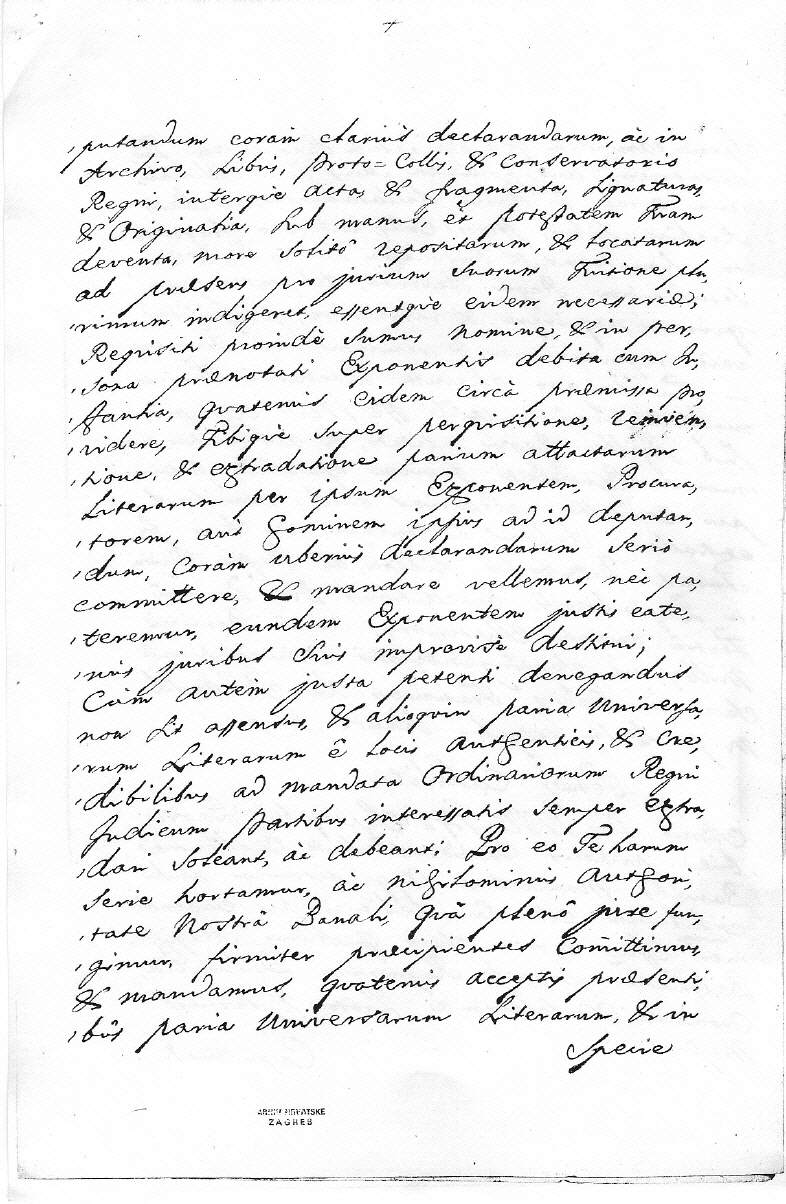 ,putandum coram clarius declarandarum, ac in
Archivo, Libris, Proto=Collis, & Conservatorio
Regni, interque acta, & fragmenta, Signaturas,
& Originalia, sub manus, et potestatem Tuam
deventa, more solitô repositarum, & locatarum
ad præsens pro jurium suorum Tuitione plu,
,rimum indigeret, essentque eidem necessariæ;
Requisiti proindè sumus Nomine, & in per,
,sona prænotati Exponentis debita cum In,
,stantia, quatenus eidem circà præmissa pro,
,videre, Tibique super perquisitione, reinven,
,tione, & extradatione parium attactarum
Literarum per ipsum Exponentem, Procura,
,torem, aut hominem ipsius ad id deputan,
,dum, Coràm uberius declarandarum seriò
committere, & mandare vellemus, nèc pa,
,teremur, eundem Exponentem justis eate,
,nus juribus suis improvisè destitui;
Cùm autem justa petenti denegandus
non sit assensus, & alioquin paria Universa,
,rum Literarum ê locis authenticis, & Cre,
,dibilibus ad mandata Ordinariorum Regni
Judicum Partibus interessatis semper extra,
,dari soleant, àc debeant; Pro eo Te harum
serie hortamur, àc nihilominus Authori,
,tate Nostrâ Banali, quâ plenô jure fun,
,gimur, firmiter præcipientes Com̃ittimus,
& mandamus, quatenus acceptis præsenti,
,bus paria Universarum Literarum, & in
Specie
ARHIV HRVATSKE
ZAGREB